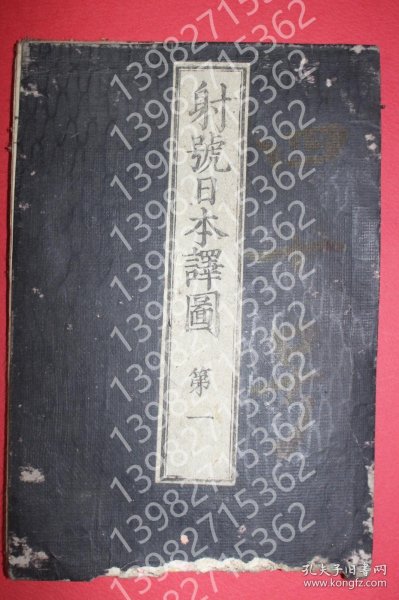 射號日本譯圖 第一
13982715362
13982715362
13982715362
13982715362
13982715362
13982715362
13982715362
13982715362
13982715362
13982715362
孔夫子旧书网
www.kongfz.com